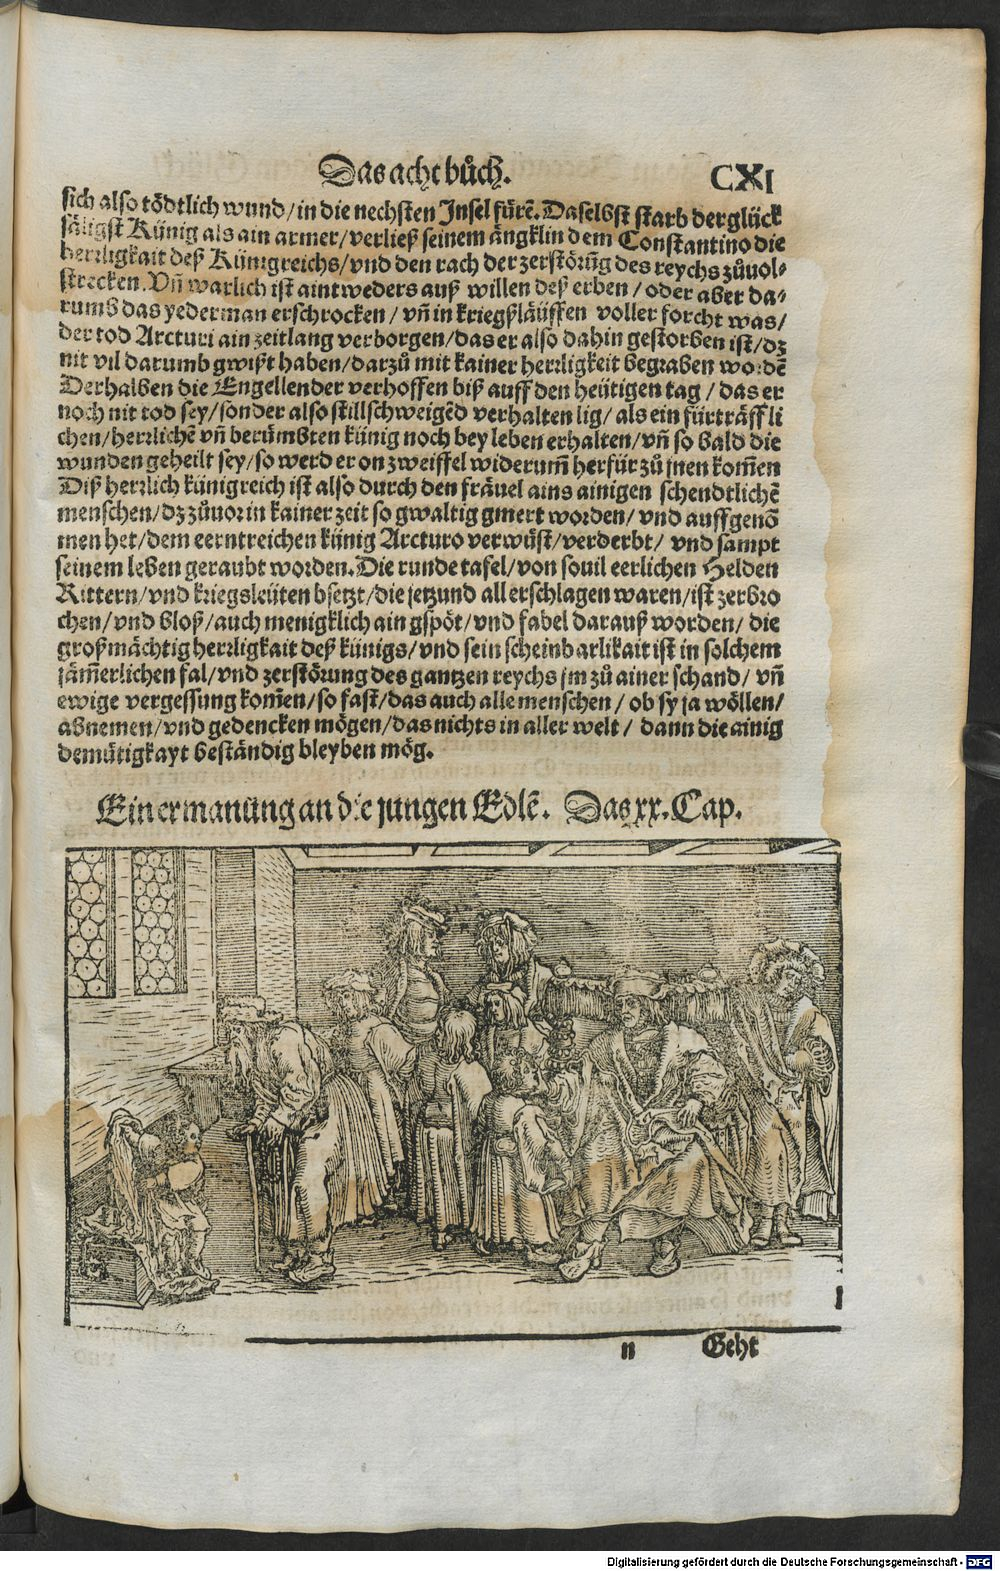 Das acht bůch. CXI
sich also tödtlich wund/in die nechsten Insel fürē. Daselbst starb der glück
säligst Künig als ain armer/verließ seinem ängklin dem Constantino die
herrligkait deß Künigreichs/vnd den rach der zerstörūg des reychs zůuol⸗
strecken. Vñ warlich ist aintweders auß willen deß erben/oder aber da⸗
rumb das yederman erschrocken/vñ in kriegßläüffen voller forcht was/
der tod Arcturi ain zeitlang verborgen/das er also dahin gestorben ist/dz
nit vil darumb gwißt haben/darzů mit kainer herrligkeit begraben wordē
Derhalben die Engellender verhoffen biß auff den heütigen tag/das er
noch nit tod sey/sonder also stillschweigēd verhalten lig/als ein fürträffli
chen/herrlichē vñ berümbsten künig noch bey leben erhalten/vñ so bald die
wunden geheilt sey/so werd er on zweiffel widerum̄ herfür zů jnen kom̄en
Diß herrlich künigreich ist also durch den fräuel ains ainigen schendtlichē
menschen/dz zůuor in kainer zeit so gwaltig gmert worden/vnd auffgenō
men het/dem eerntreichen künig Arcturo verwüst/verderbt/vnd sampt
seinem leben geraubt worden. Die runde tafel/von souil eerlichen Helden
Rittern/vnd kriegsleüten bsetzt/die jetzund all erschlagen waren/ist zerbro
chen/vnd bloß/auch menigklich ain gspöt/vnd fabel darauß worden/die
großmächtig herrligkait deß künigs/vnd sein scheinbarlikait ist in solchem
jäm̄erlichen fal/vnd zerstörung des gantzen reychs jm zů ainer schand/vñ
ewige vergessung kom̄en/so fast/das auch alle menschen/ob sy ja wöllen/
abnemen/vnd gedencken mögen/das nichts in aller welt/dann die ainig
demütigkayt beständig bleyben mög.
Ein ermanūng an die jungen Edlē. Das xx. Cap.
n Geht
Digitalisierung gefördert durch die Deutsche Forschungsgemeinschaft - DFG